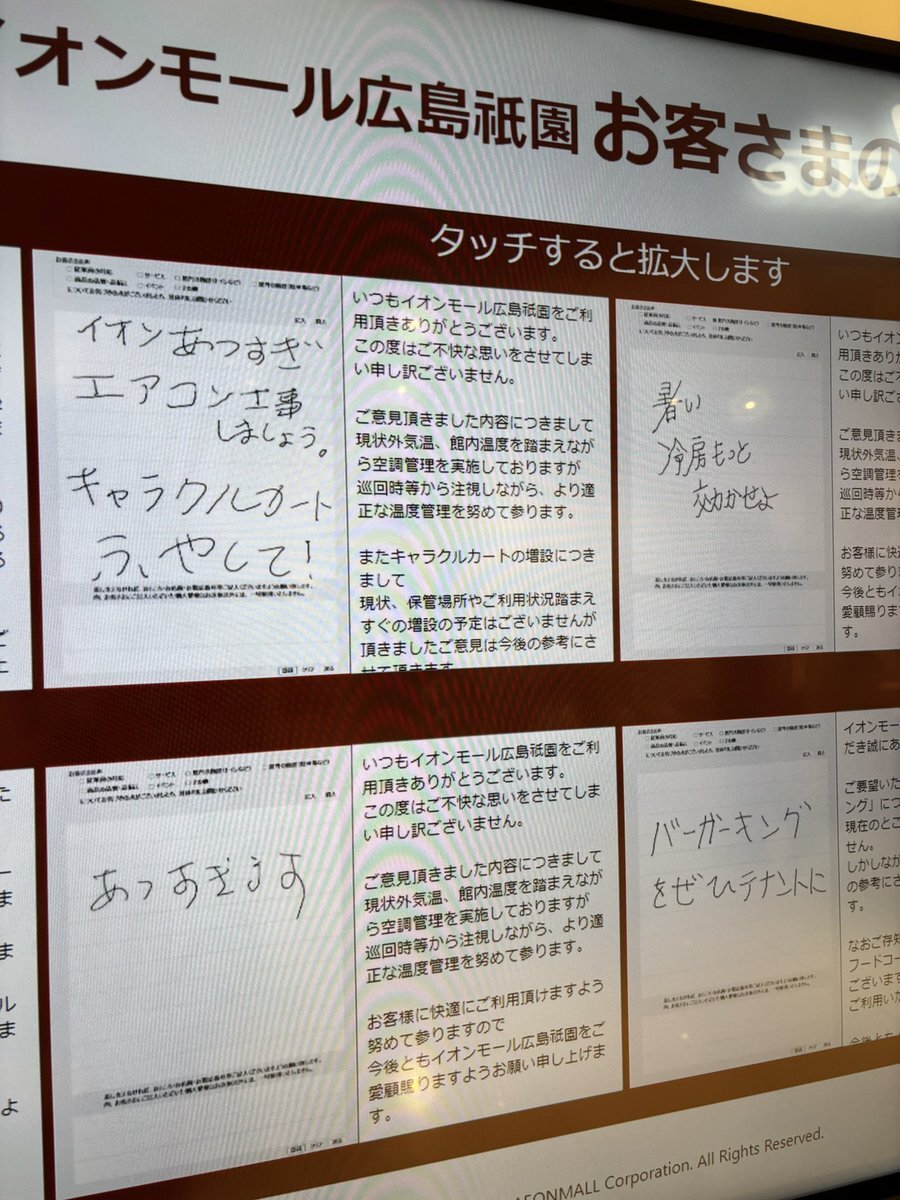 イオンモール広島祇園 お客さまの
タッチすると拡大します
イオンあつすぎ
エアコン工事
しましょう。
キャラクルカート
ふやして!
いつもイオンモール広島祇園をご利
用頂きありがとうございます。
この度はご不快な思いをさせてしま
い申し訳ございません。
ご意見頂きました内容につきまして
現状外気温、館内温度を踏まえなが
ら空調管理を実施しておりますが
巡回時等から注視しながら、より適
正な温度管理を努めて参ります。
またキャラクルカートの増設につき
まして
現状、保管場所やご利用状況踏まえ
すぐの増設の予定はございませんが
頂きましたご意見は今後の参考にさ
せて頂きます
暑い
冷房もっと
効かせよ
いつもイオン
用頂きありが
この度はご不
い申し訳ござ
ご意見頂きま
現状外気温、
ら空調管理を
巡回時等から
正な温度管理
お客様に快適
努めて参りま
今後ともイオ
愛顧賜りま
す。
あつすぎます
いつもイオンモール広島祇園をご利
用頂きありがとうございます。
この度はご不快な思いをさせてしま
い申し訳ございません。
ご意見頂きました内容につきまして
現状外気温、館内温度を踏まえなが
ら空調管理を実施しておりますが
巡回時等から注視しながら、より適
正な温度管理を努めて参ります。
お客様に快適にご利用頂けますよう
努めて参りますので
今後ともイオンモール広島祇園をご
愛顧賜りますようお願い申し上げま
す。
バーガーキング
をぜひテナントに
イオンモー
だき誠にあ
ご要望いた
ング」につ
現在のとこ
せん。
しかしなが
の参考にさ
す。
なおご存知
フードコー
ございます
ご利用いた
今後とも
AEONMALL Corporation. All Rights Reserved.